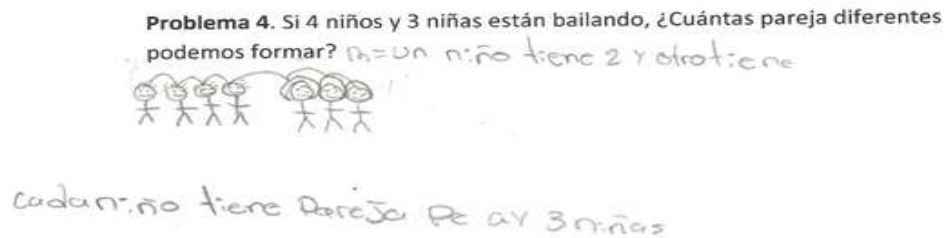 Problema 4. Si 4 niños y 3 niñas están bailando, ¿Cuántas pareja diferentes
podemos formar? R=un niño tiene 2 y otro tiene
cada niño tiene Pareja Pe ay 3 niñas